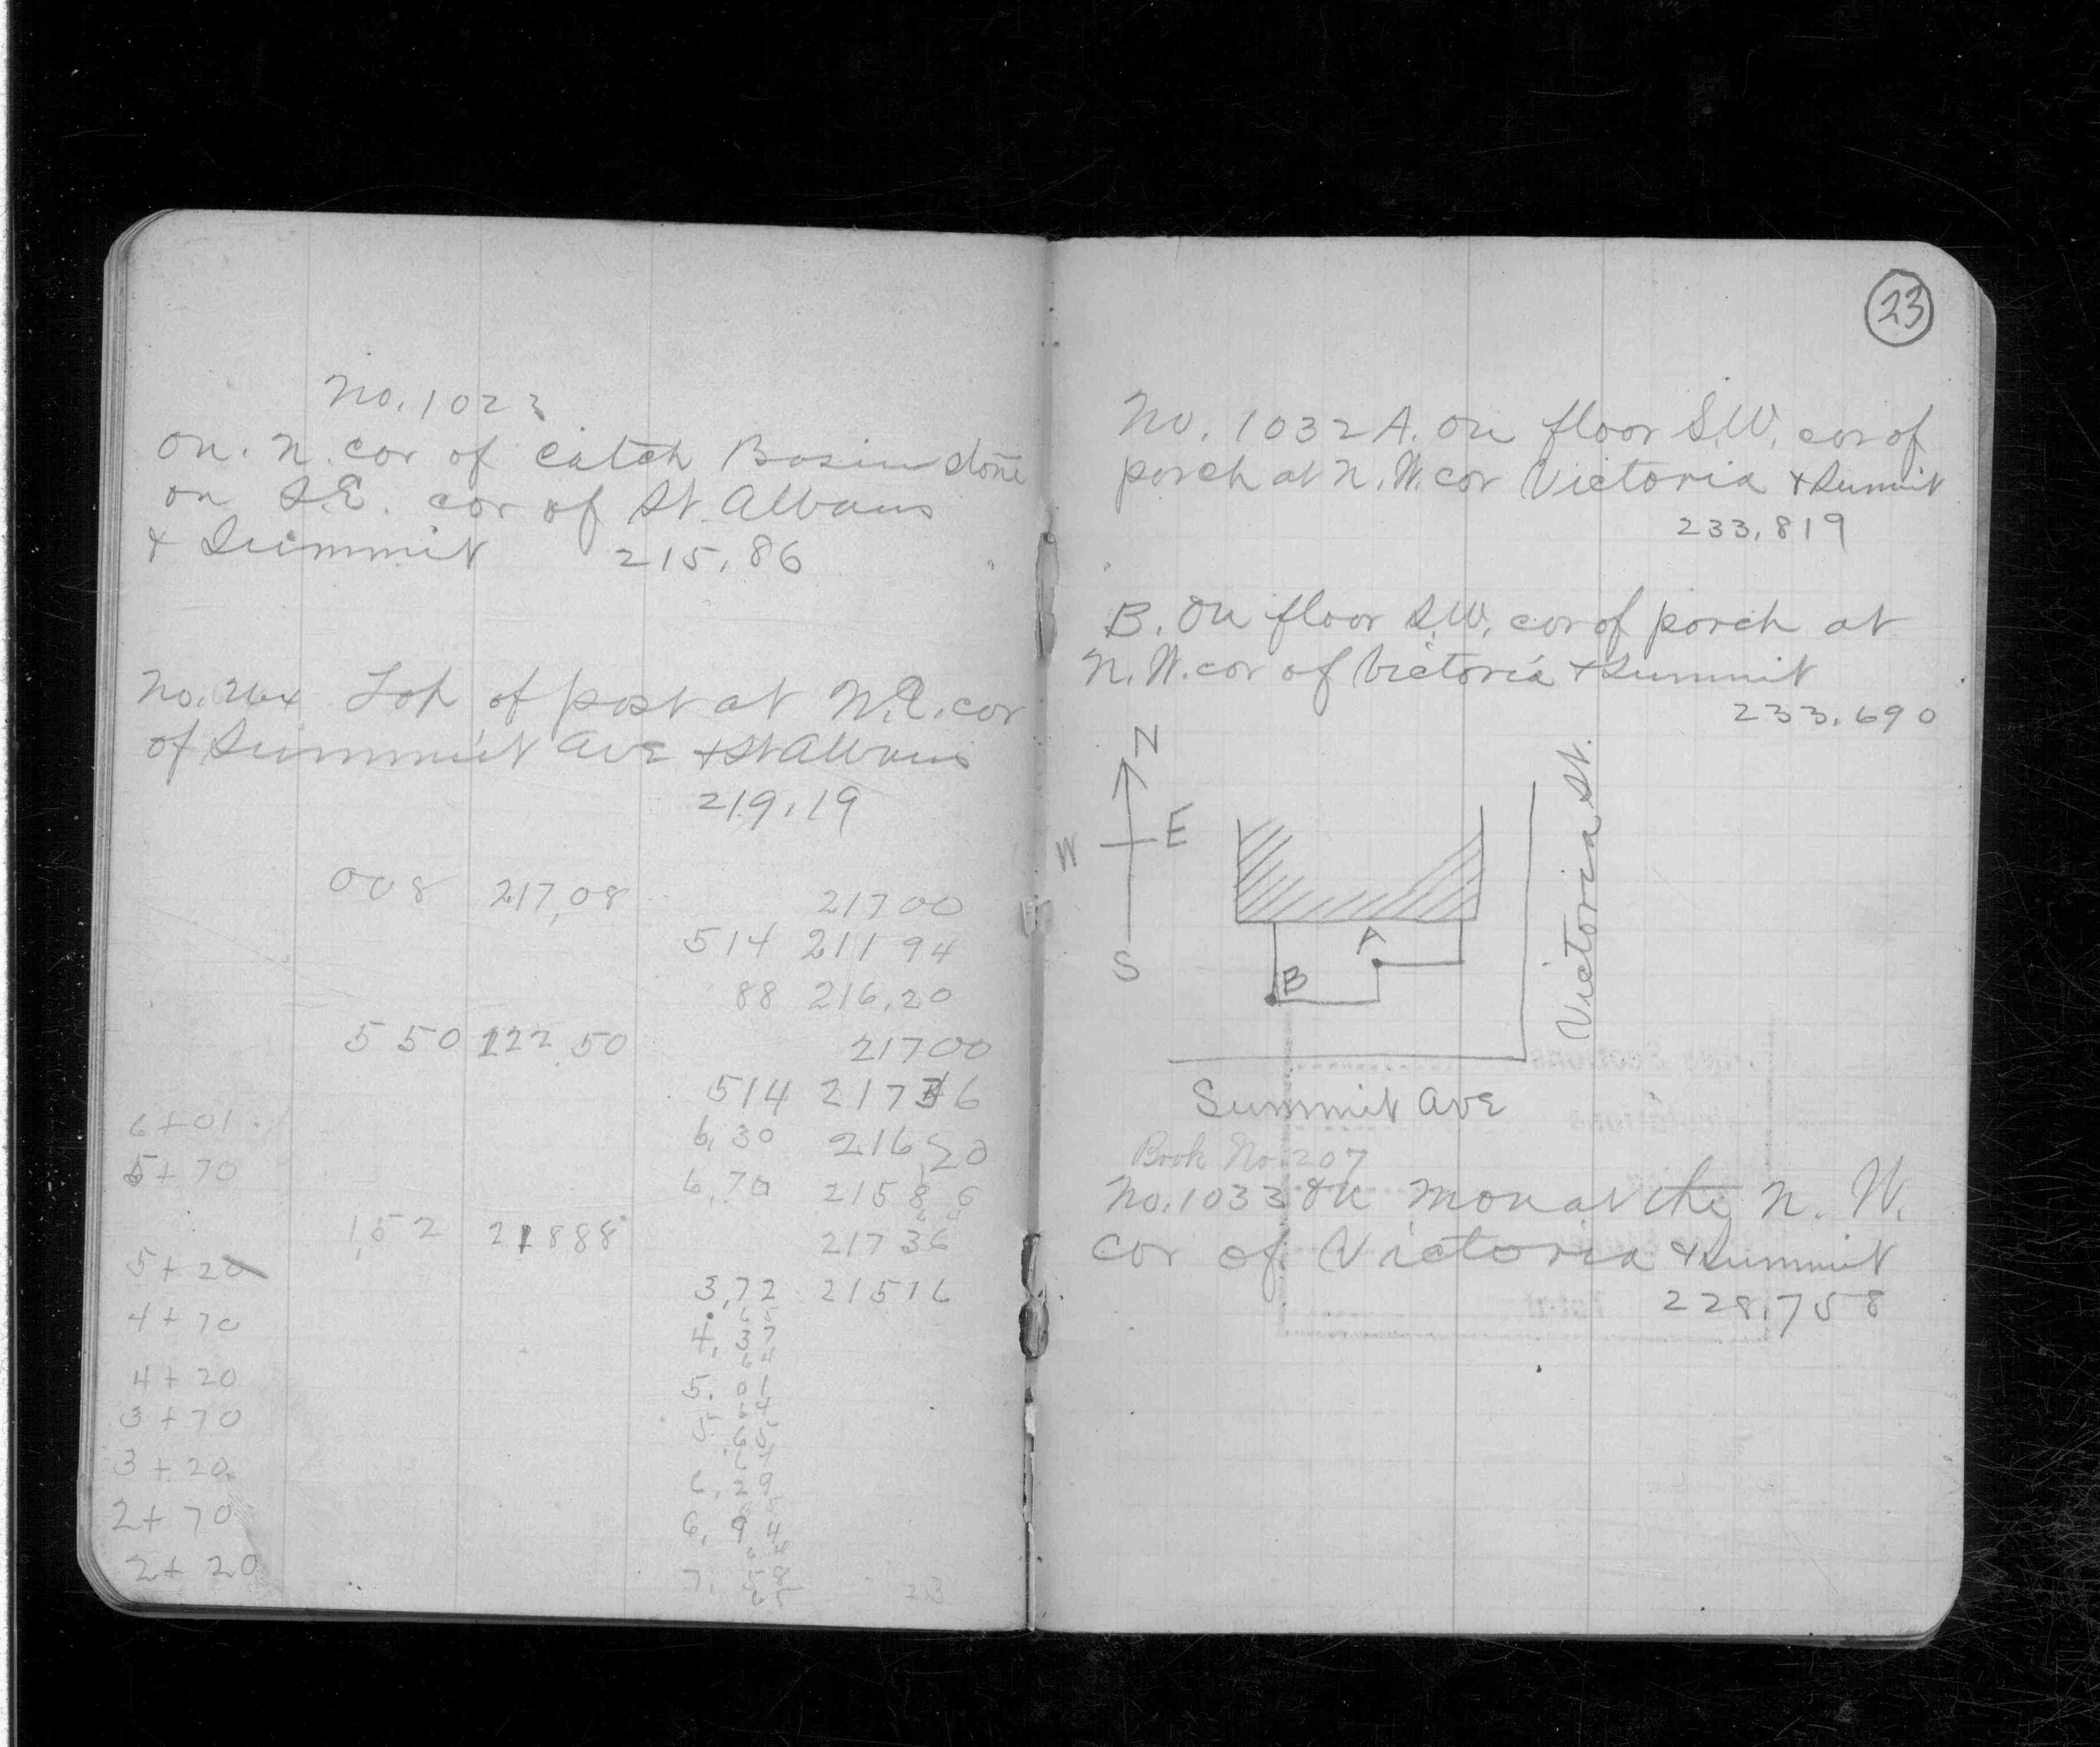 No. 1023
on. N. cor of Catch Basin stone
on S.E. cor of St Albans
& Summit 215.86
No. 264 Top of post at N.E. cor
of Summit Ave + St Albans
219.19
008 217,08 21700
514 211 94
88 216,20
5 50 122 50 21700
514 217 36
6+01. 6,30 216 20
5+70 6,70 215 86
1,52 21888 217 36
5+20 3,72 21516
4+70 4,37
64
4+20 5.01
64
3+70 5.65
64
3+20 6,29
2+70 6,94
2+20 7,58
23
No. 1032 A. On floor S.W. cor of
porch at N.W. cor Victoria & Summit
233,819
B. On floor S.W. cor of porch at
N.W. cor of Victoria + Summit
233.690
N
W E
S
A
B
Victoria St.
Summit Ave
Book No. 207
No. 1033 On mon at the N. W.
cor of Victoria & Summit
228.758